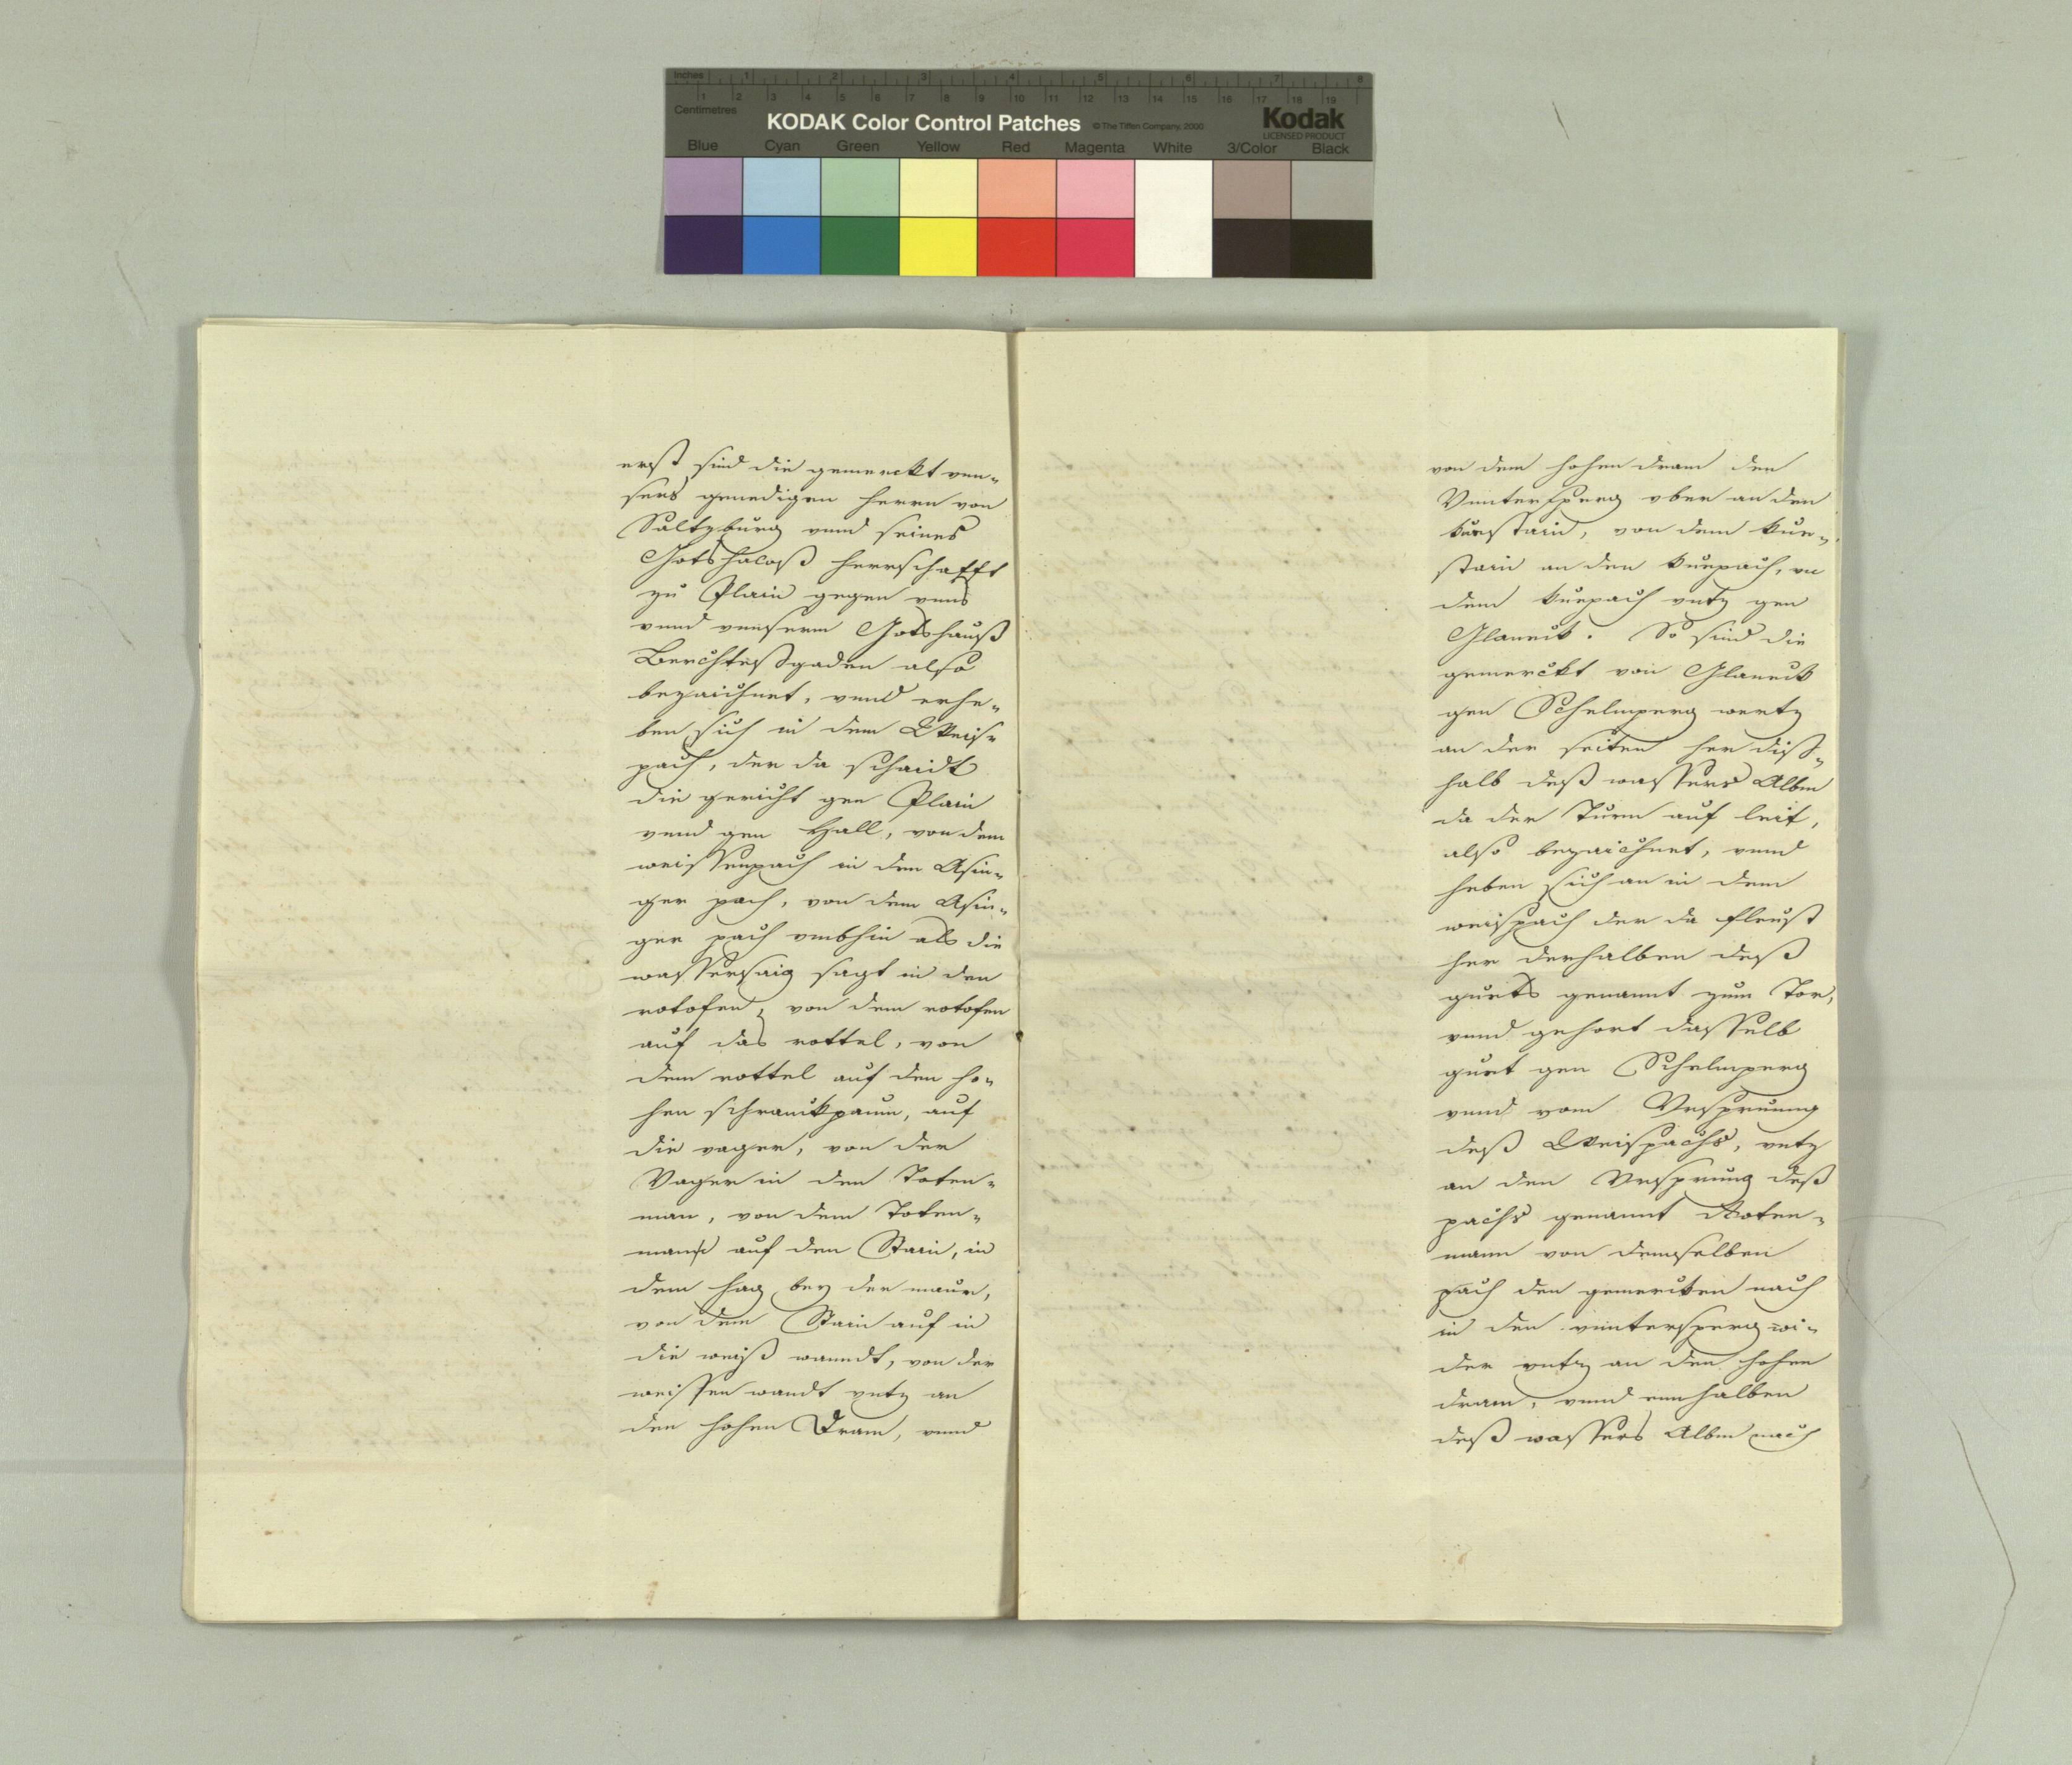 Inches 1 2 3 4 5 6 7 8
Centimetres 1 2 3 4 5 6 7 8 9 10 11 12 13 14 15 16 17 18 19
KODAK Color Control Patches © The Tiffen Company, 2000 Kodak
LICENSED PRODUCT
Blue Cyan Green Yellow Red Magenta White 3/Color Black
erst sind die gemerckt vnn„
sers genedigen herrn von
Saltzburg vnnd seines
Gotshaus herrschafft
zu Plain gegen vnns
vnnd vnnserm Gotshauß
Berchteßgaden also
bezaichnet, vnnd erhe„
ben sich in dem Weis„
pach, der da schaidt
die gericht gen Plain
vnnd gen Hall, von dem
weissenpach in den Asin„
ger pach, von dem Asin„
ger pach vmbhin als die
wassersaig sagt in den
rotofen, von dem rotofen
auf das rottel, von
dem rottel auf den ho„
hen schranckpaum, auf
die vager, von der
Vager in den Toten„
man, von dem Toten„
mann auf den Stain, in
dem hag bey der maur,
von dem Stain auf in
die weiß wanndt, von der
weissen wandt vntz an
den hohen Dram, vnnd
von dem hohen dram den
Vnntersperg vber an den
kuestain, von dem kue„
stain an den kuepach, vn
dem kuepach vntz gen
Glaneck. So sind die
gemerckt von Glaneck
gen Schelmperg wertz
an der seiten her diß„
halb deß wassers Albm
da der Turm auf leit,
also bezaichnet, vnnd
heben sich an in dem
weispach der da fleust
her derhalben deß
guets genannt zum Tor,
vnnd gehort dasselb
guet gen Schelmperg
vnnd vom Vrsprunng
deß Weispachs, vntz
an den Vrsprung deß
pachs genannt Roten„
mann von demselben
pach den gemerckten nach
in den vnntersperg wi„
der vntz an den hohen
dram, vnnd ennhalben
deß wassers Albm nach